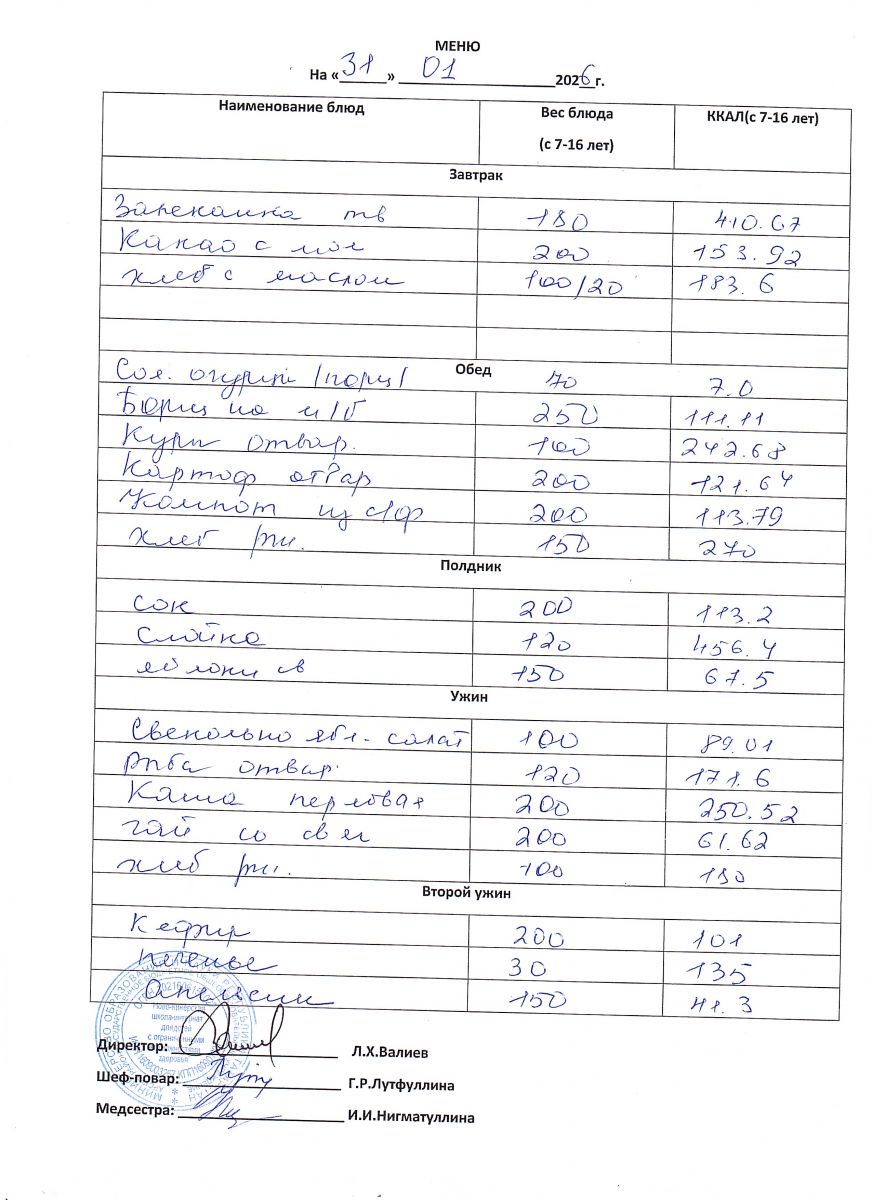 МЕНЮ
На «31» 01 2026 г.
Наименование блюд Вес блюда (с 7-16 лет) ККАЛ(с 7-16 лет)
Завтрак
Запеканка тв 180 410.67
Какао с мол 200 153.92
хлеб с маслом 100/20 183.6
Обед
Сол. огурцы /порц/ 70 7.0
Борщ на м/б 250 111.11
Куры отвар. 100 242.68
Картоф отвар 200 121.64
Компот из с/ф 200 113.79
хлеб рж. 150 270
Полдник
сок 200 113.2
слойка 120 456.4
яблоки св 150 67.5
Ужин
Свекольно ябл. салат 100 89.01
Рыба отвар. 120 171.6
Каша перловая 200 250.52
чай со 200 61.62
хлеб рж. 100 180
Второй ужин
Кефир 200 101
печенье 30 135
Апельсин 150 41.3
школа-интернат
для детей
с ограниченными
здоровья
Директор: Л.Х.Валиев
Шеф-повар: Г.Р.Лутфуллина
Медсестра: И.И.Нигматуллина